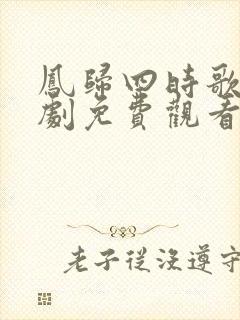 鳳歸四時歌
劇免費觀看
老子從沒遵守